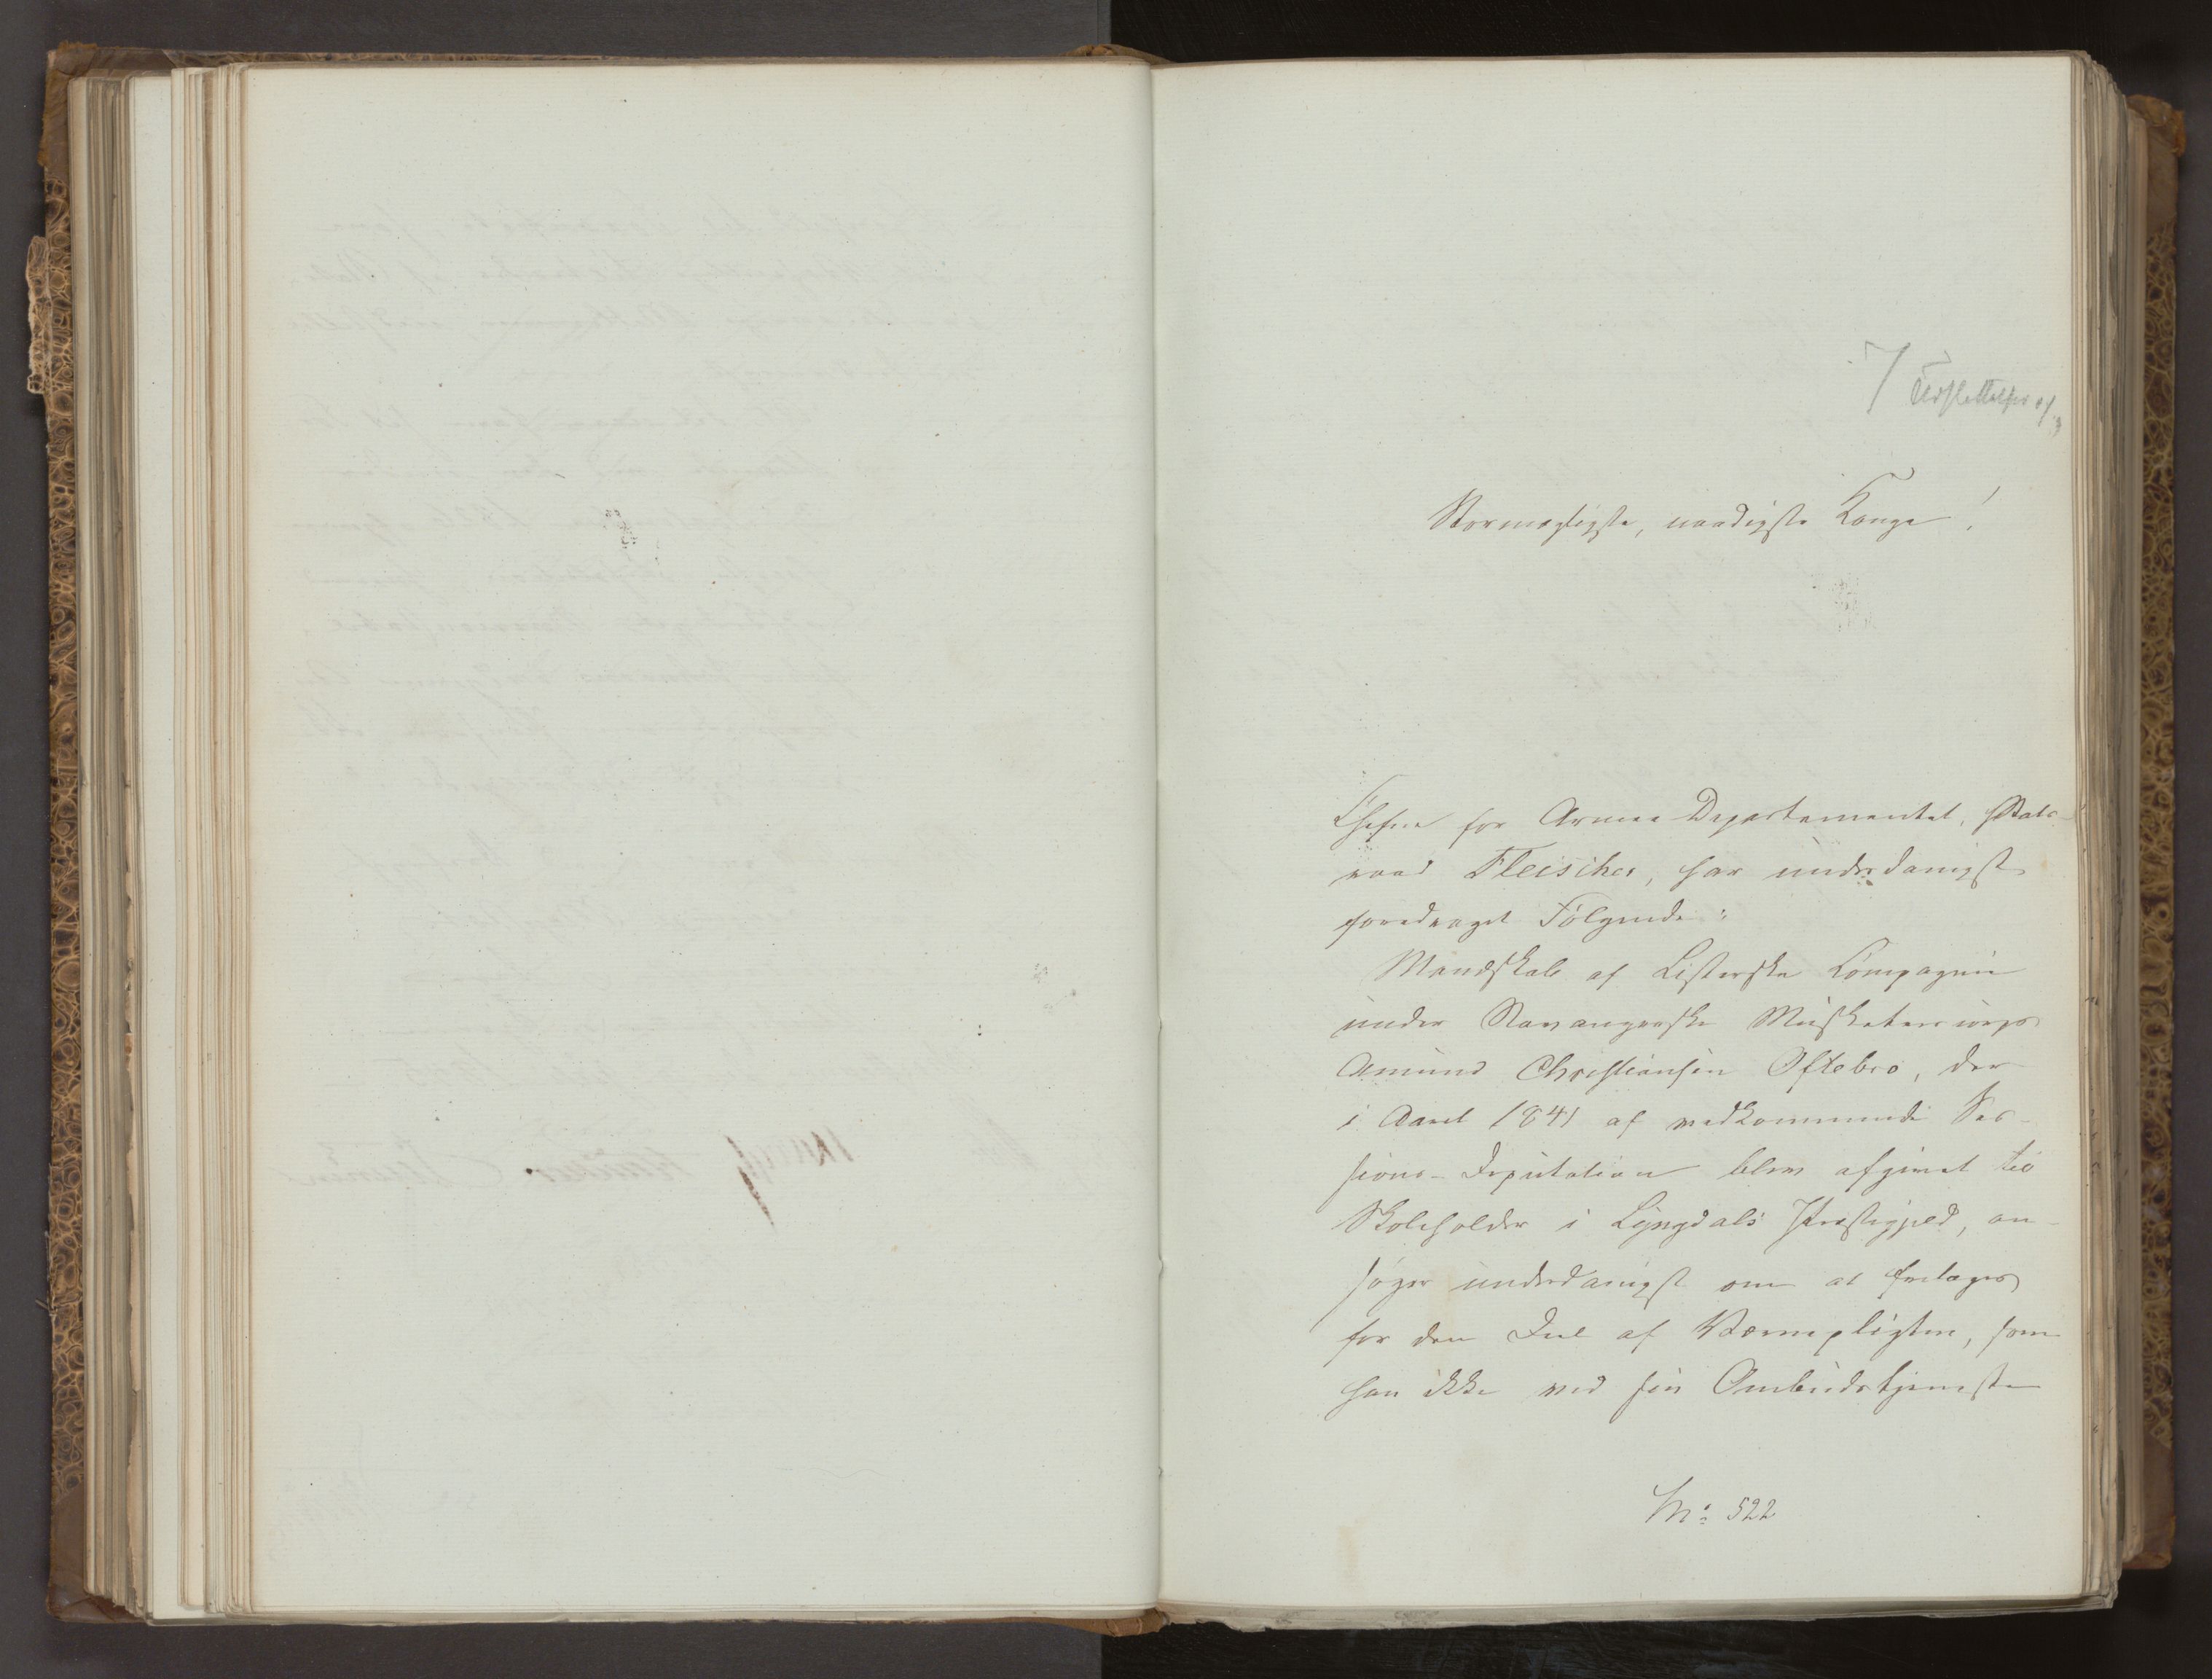 7 Udskættelser af
Stormægtigste, naadigste Konge!
Chefen for Armee-Departementet, Stats-
raad Fleischer, har underdanigst
foredraget Følgende:
Mandskab af Listerske Compagnie
under Stavangerske Musketeercorps
Amund Christiansen Oftebro, der
i Aaret 1841 af vedkommende Ses-
sions-Deputation blev afgivet til
Skoleholder i Lyngdals Præstegjeld, an-
søger underdanigst om at fritages
for den Deel af Værnepligten, som
han ikke ved sin Ombudstjeneste
No: 522